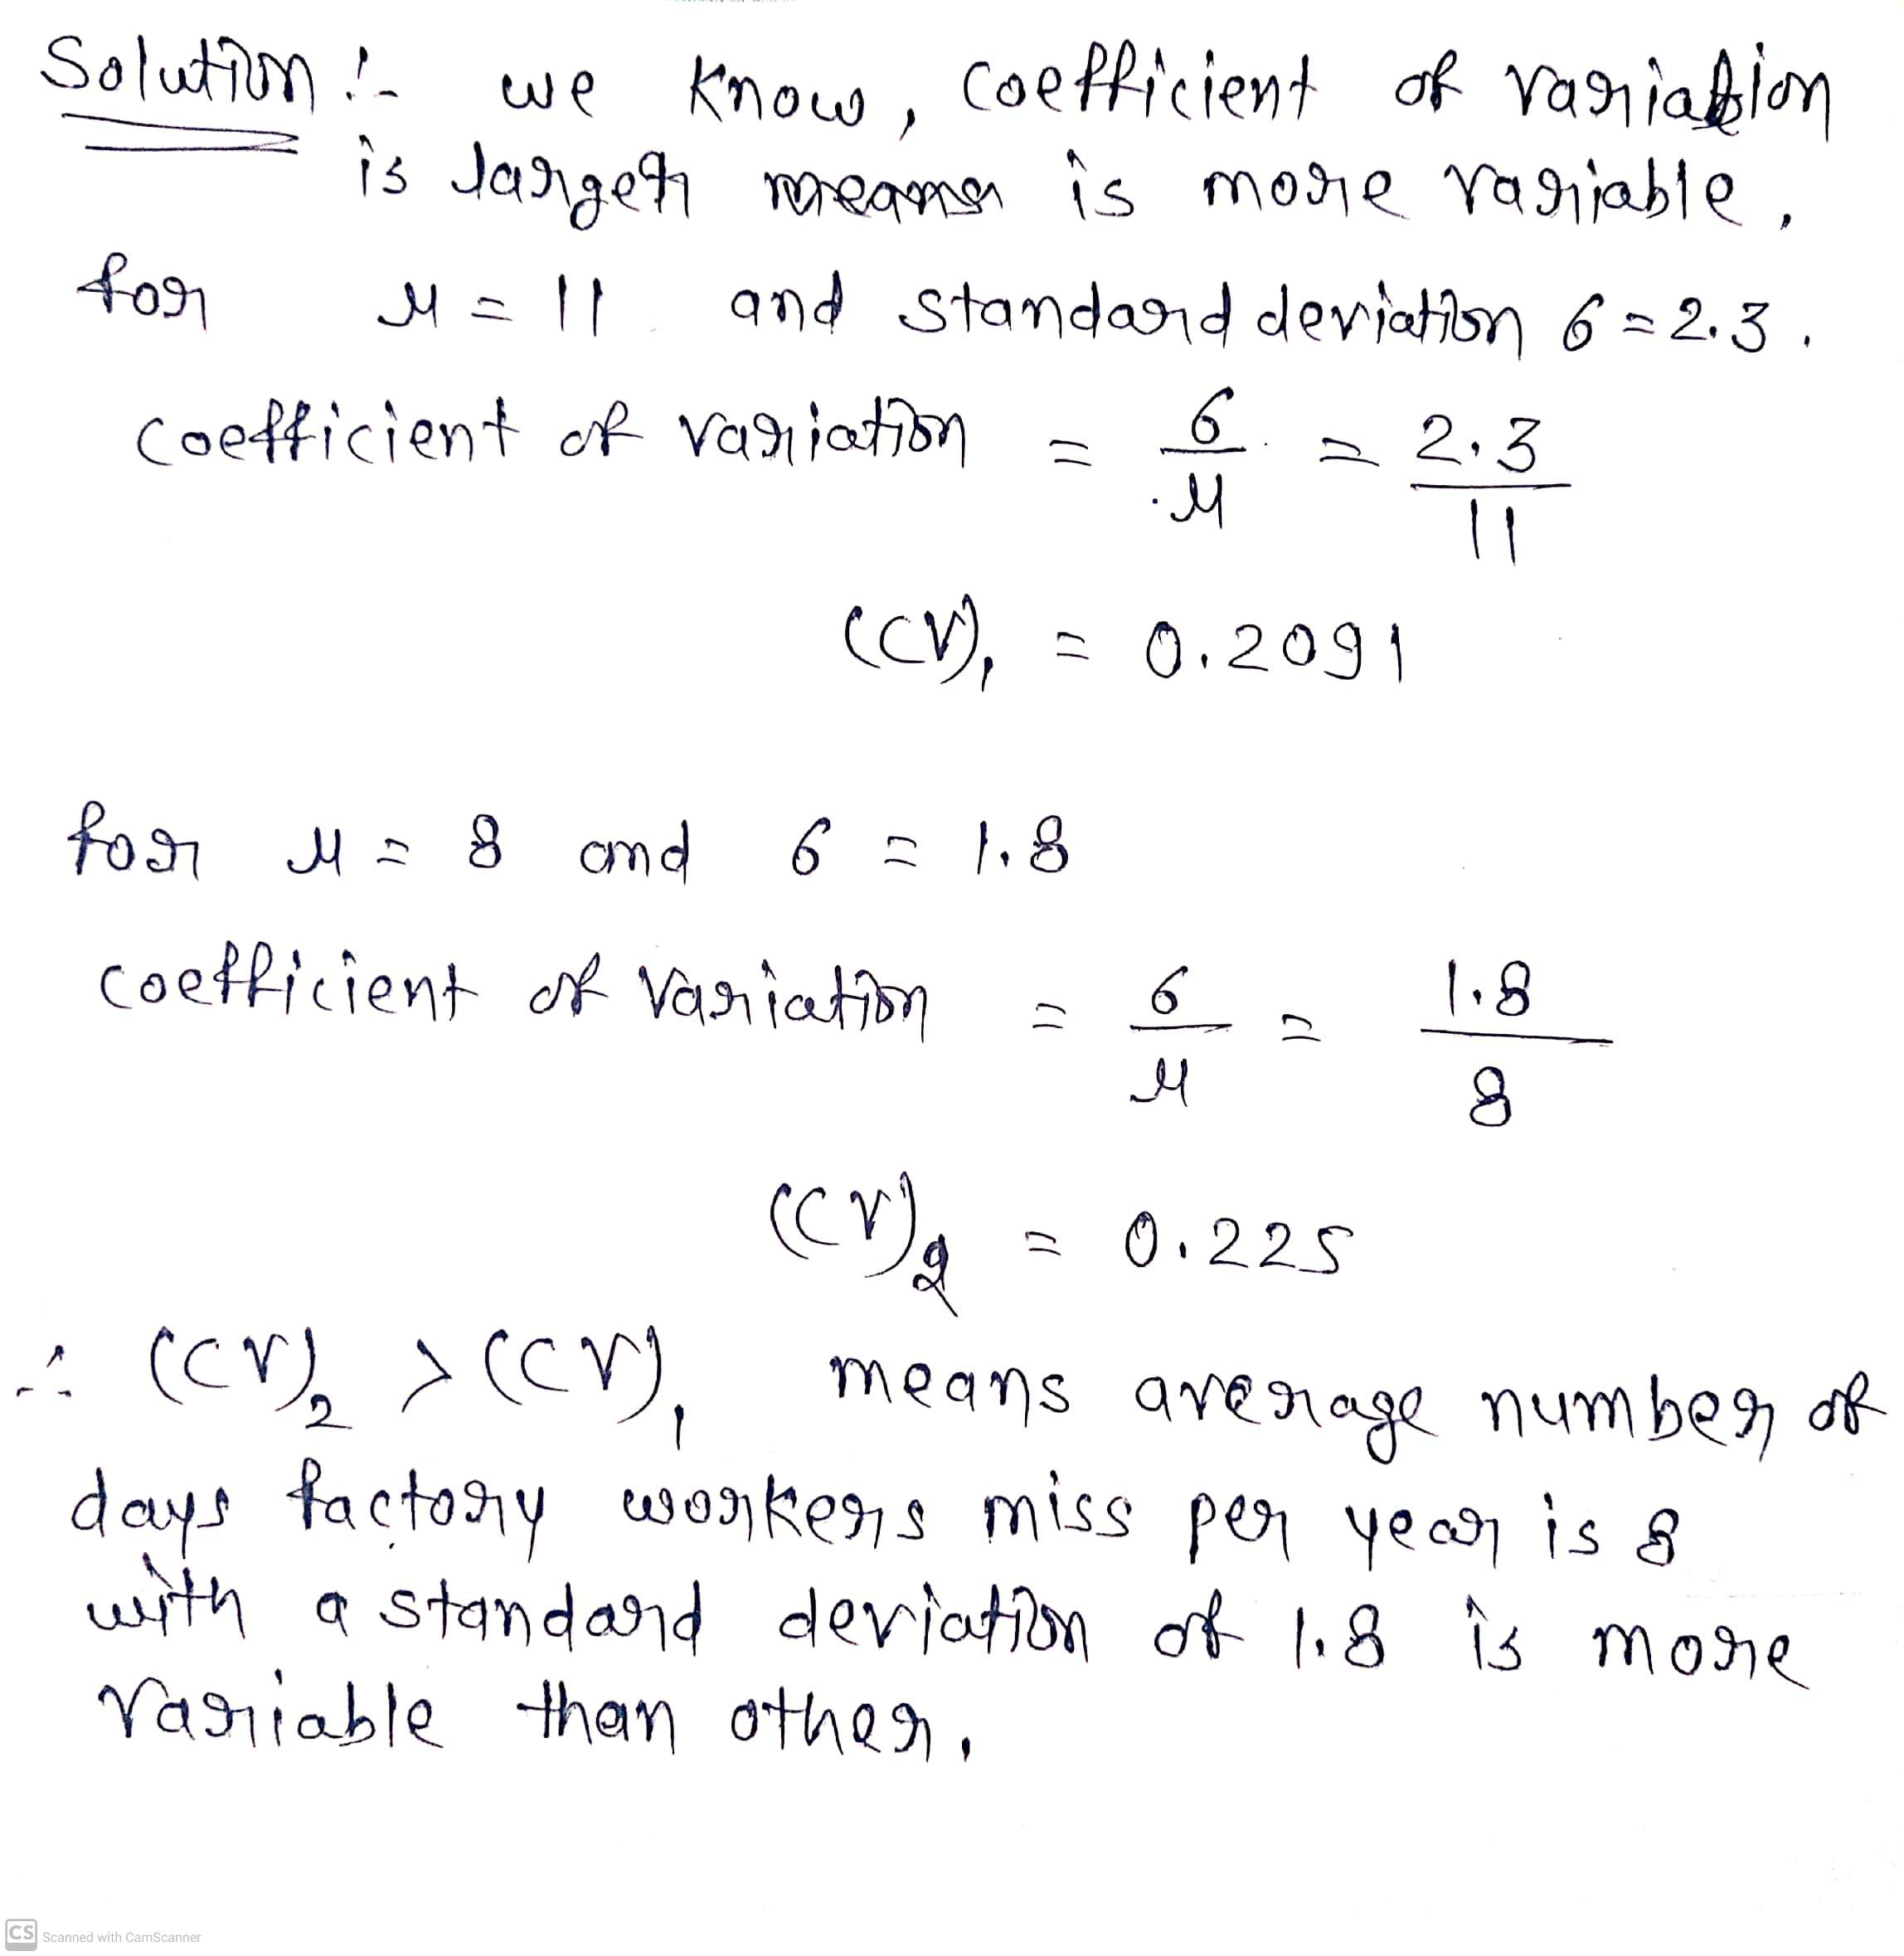 Solution :- we know, coefficient of variation
is larger means is more variable.
for μ = 11 and standard deviation σ = 2.3.
coefficient of variation = σ/μ = 2.3/11
(CV)₁ = 0.2091
for μ = 8 and σ = 1.8
coefficient of variation = σ/μ = 1.8/8
(CV)₂ = 0.225
∴ (CV)₂ > (CV)₁ means average number of
days factory workers miss per year is 8
with a standard deviation of 1.8 is more
variable than other.
CS Scanned with CamScanner